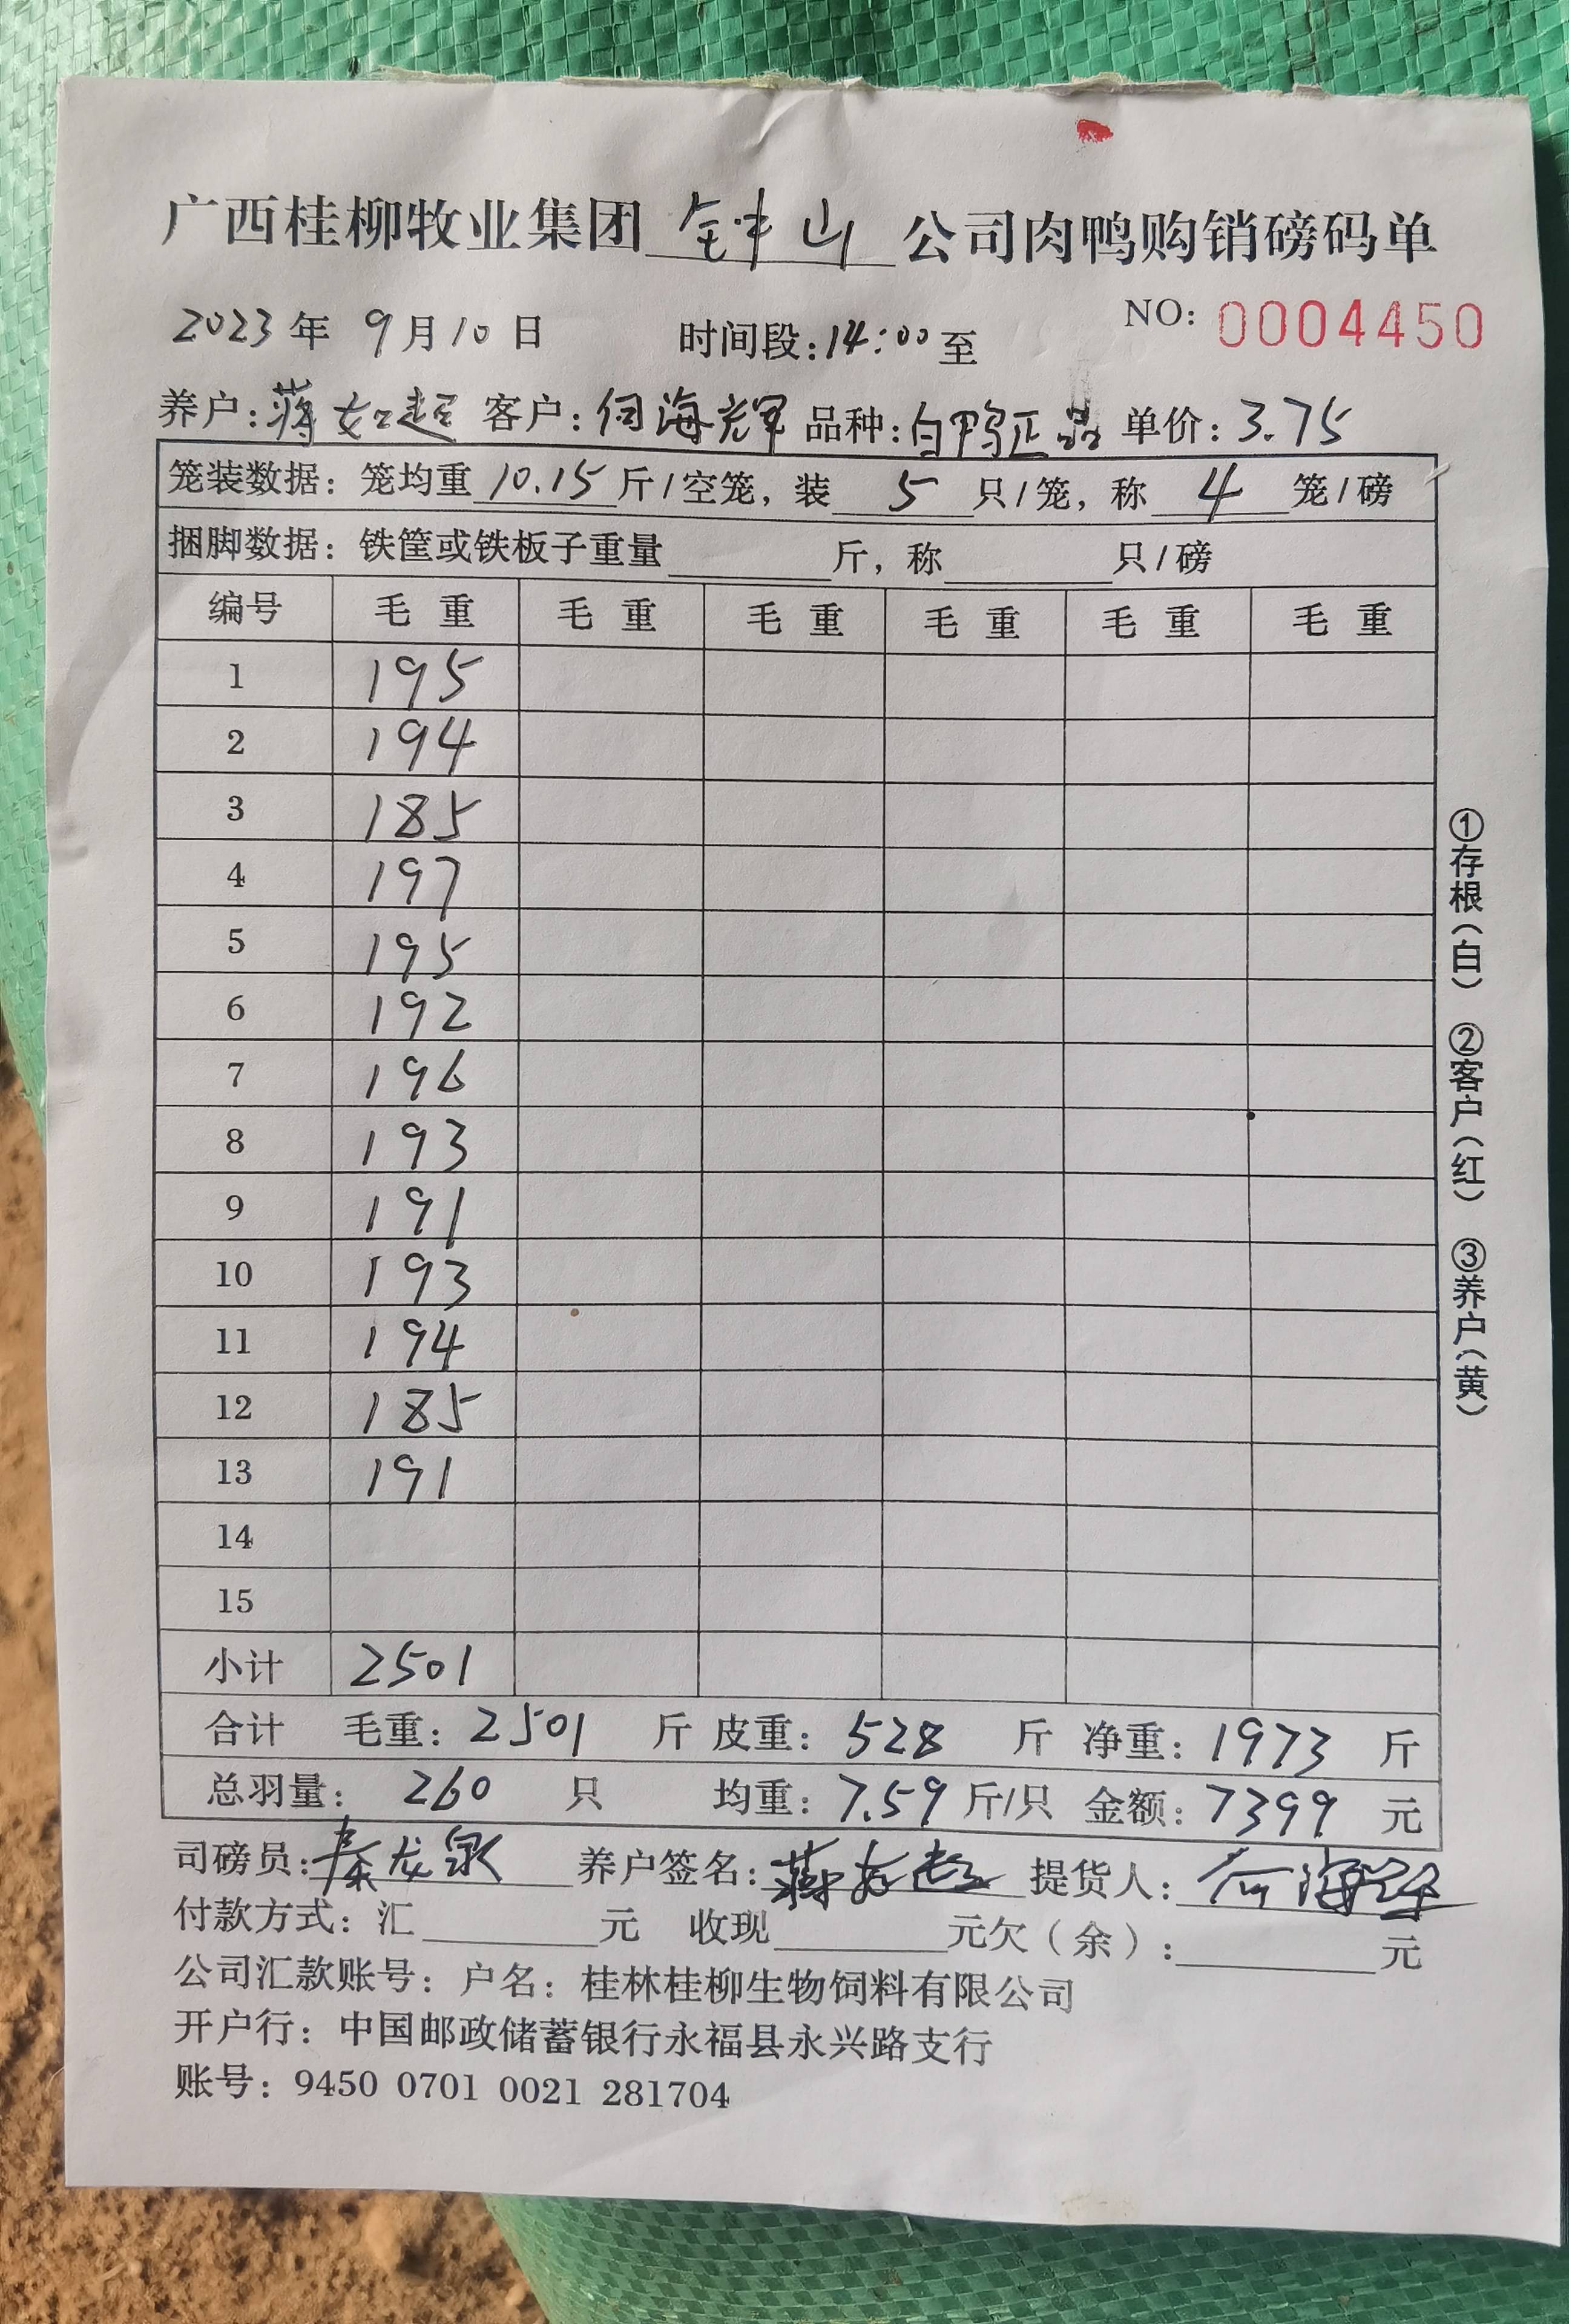 广西桂柳牧业集团 钟山 公司肉鸭购销磅码单
NO: 0004450
2023年 9月10日 时间段:14:00至
养户:蒋如超 客户:何海辉 品种:白鸭正品 单价:3.75
笼装数据:笼均重 10.15 斤/空笼,装 5 只/笼,称 4 笼/磅
捆脚数据:铁筐或铁板子重量 斤,称 只/磅
编号 毛重 毛重 毛重 毛重 毛重 毛重
1 195
2 194
3 185
4 197
5 195
6 192
7 196
8 193
9 191
10 193
11 194
12 185
13 191
14
15
小计 2501
合计 毛重:2501 斤 皮重:528 斤 净重:1973 斤
总羽量:260 只 均重:7.59 斤/只 金额:7399 元
司磅员:秦龙泉 养户签名:蒋如超 提货人:何海辉
付款方式:汇 元 收现 元欠(余): 元
公司汇款账号:户名:桂林桂柳生物饲料有限公司
开户行:中国邮政储蓄银行永福县永兴路支行
账号:9450 0701 0021 281704
①存根(白) ②客户(红) ③养户(黄)